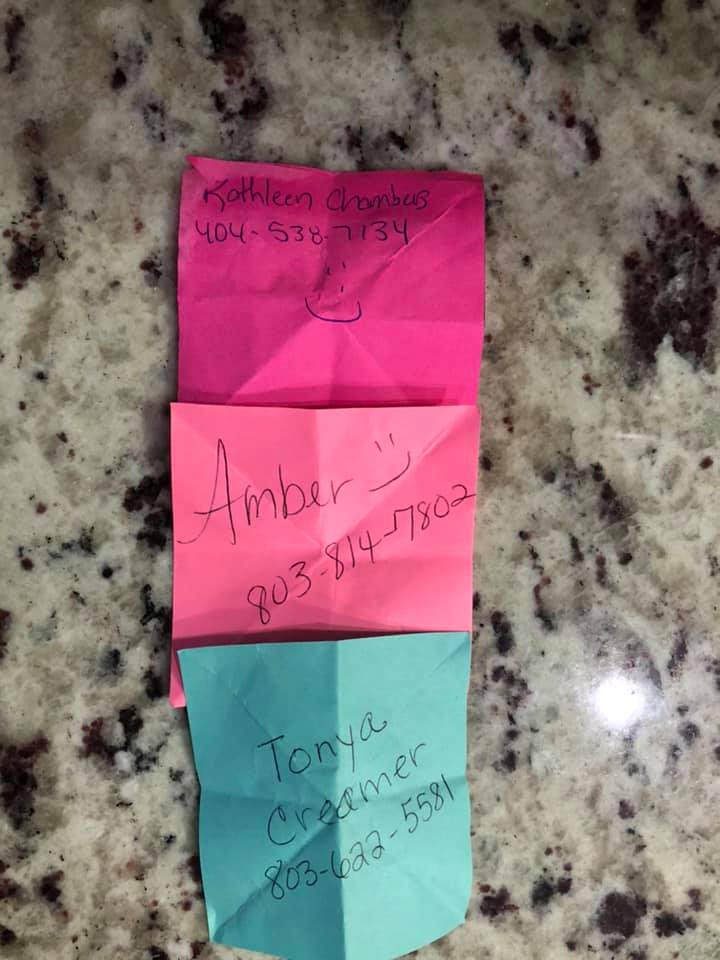 Kathleen Chambers
404-538-7134
Amber
803-814-7802
Tonya
Creamer
803-622-5581